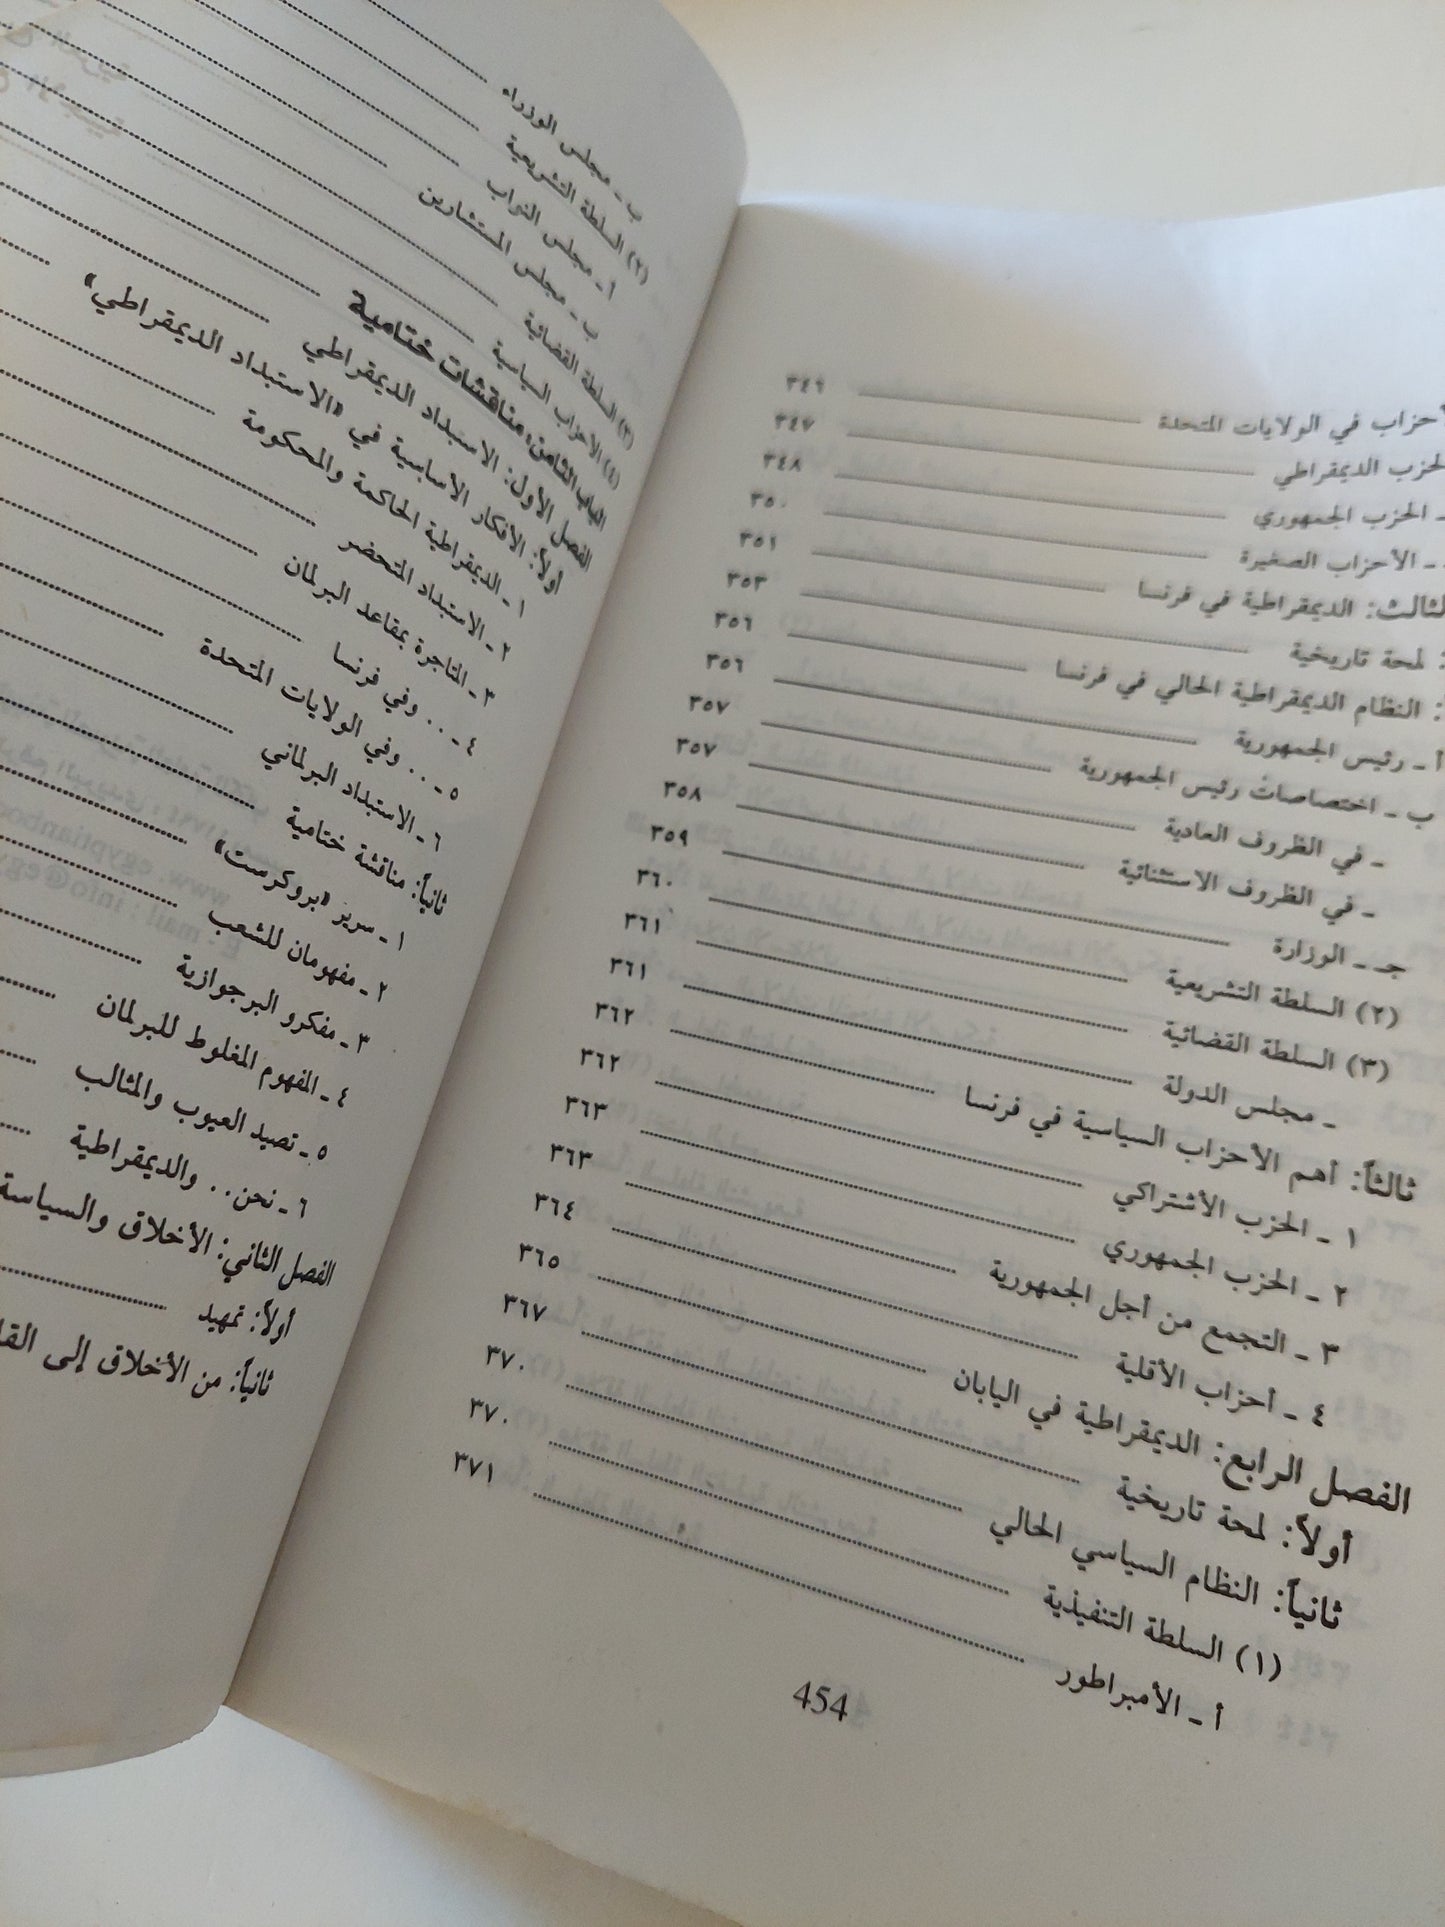 أحزاب في الولايات المتحدة ٣٤٦
الحزب الديمقراطي ٣٤٧
ـ الحزب الجمهوري ٣٤٨
ـ الأحزاب الصغيرة ٣٥٠
الثالث: الديمقراطية في فرنسا ٣٥١
: لمحة تاريخية ٣٥٣
: النظام الديمقراطية الحالي في فرنسا ٣٥٦
أ ـ رئيس الجمهورية ٣٥٦
ب ـ اختصاصات رئيس الجمهورية ٣٥٧
ـ في الظروف العادية ٣٥٧
ـ في الظروف الاستثنائية ٣٥٨
جـ ـ الوزارة ٣٥٩
(٢) السلطة التشريعية ٣٦٠
(٣) السلطة القضائية ٣٦١
ـ مجلس الدولة ٣٦١
ثالثاً: أهم الأحزاب السياسية في فرنسا ٣٦٢
١ ـ الحزب الأشتراكي ٣٦٢
٢ ـ الحزب الجمهوري ٣٦٣
٣ ـ التجمع من أجل الجمهورية ٣٦٣
٤ ـ أحزاب الأقلية ٣٦٤
الفصل الرابع: الديمقراطية في اليابان ٣٦٥
أولاً: لمحة تاريخية ٣٦٧
ثانياً: النظام السياسي الحالي ٣٧٠
(١) السلطة التنفيذية ٣٧٠
أ ـ الأمبراطور ٣٧١
454
ب ـ مجلس الوزراء
(٢) السلطة التشريعية
أ ـ مجلس النواب
ب ـ مجلس المستشارين
(٣) السلطة القضائية
(٤) الأحزاب السياسية
الباب الثامن: مناقشات ختامية
الفصل الأول: الاستبداد الديمقراطي
أولاً: الأفكار الأساسية في «الاستبداد الديمقراطي»
١ ـ الديمقراطية الحاكمة والمحكومة
٢ ـ الاستبداد المتحضر
٣ ـ المتاجرة بمقاعد البرلمان
٤ ـ .. وفي فرنسا
٥ ـ .. وفي الولايات المتحدة
٦ ـ الاستبداد البرلماني
ثانياً: مناقشة ختامية
١ ـ سرير «بروكرست»
٢ ـ مفهومان للشعب
٣ ـ مفكرو البرجوازية
٤ ـ المفهوم المغلوط للبرلمان
٥ ـ تصيد العيوب والمثالب
٦ ـ نحن.. والديمقراطية
الفصل الثاني: الأخلاق والسياسة
أولاً: تمهيد
ثانياً: من الأخلاق إلى